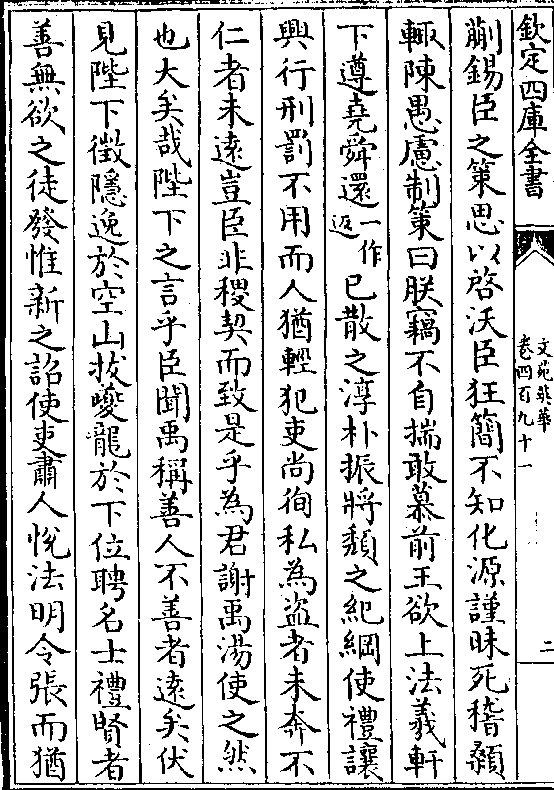 欽定四庫全書
文苑英華
卷四百九十一
二
蒯錫臣之策思以啓沃臣狂簡不知化源謹昧死稽顙
輙陳愚慮制策曰朕竊不自揣敢慕前王欲上法羲軒
下遵堯舜還一作返已散之淳朴振將頽之紀綱使禮讓
興行刑罰不用而人猶輕犯吏尚徇私為盜者未奔不
仁者未遠豈臣非稷契而致是乎為君謝禹湯使之然
也大矣哉陛下之言乎臣聞禹稱善人不善者遠矣伏
見陛下徵隱逸於空山拔夔龍於下位聘名士禮賢者
善無欲之徒發惟新之詔使吏肅人恱法明令張而猶